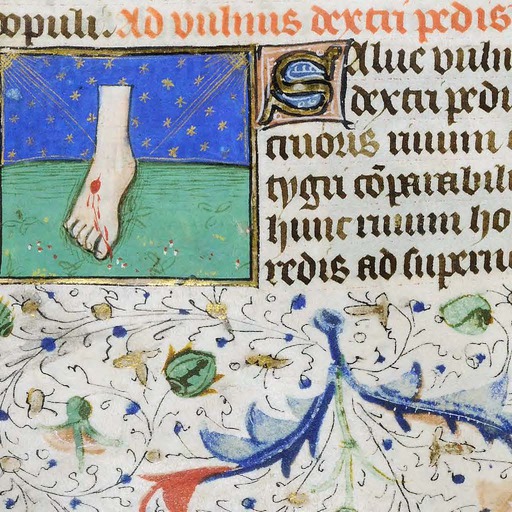 opuli. Ad vulnus dextri pedis
Salue vuln
dextri pedi
cruoris riuum
tygri cōparabil
hunc riuum ho
redis ad super